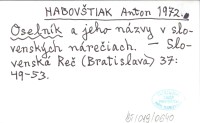 HABOVŠTIAK Anton 1972.
Oselník a jeho názvy v slo-
venských nárečiach. — Slo-
venská Reč (Bratislava) 37:
49-53.